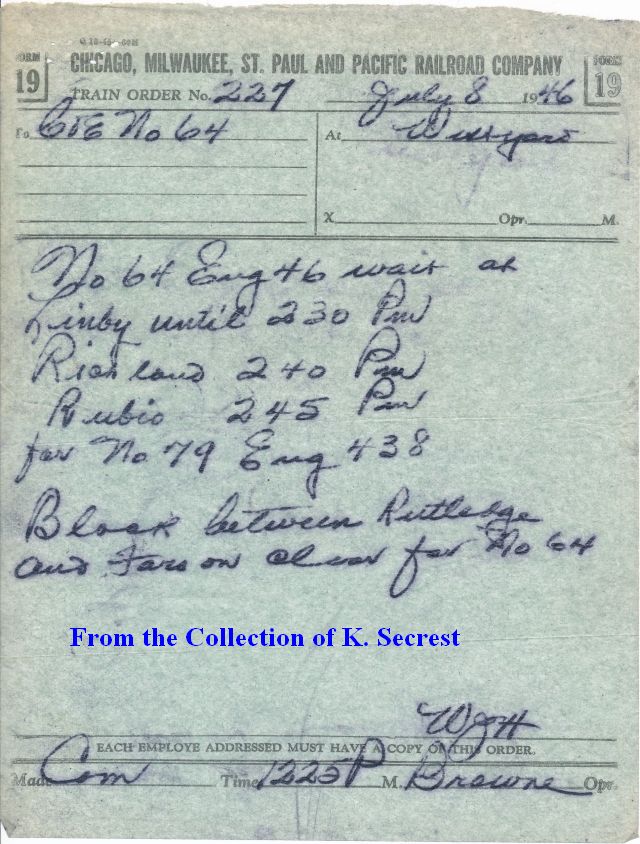 FORM 19
CHICAGO, MILWAUKEE, ST. PAUL AND PACIFIC RAILROAD COMPANY
FORM 19
TRAIN ORDER No. 227 July 8 1946
To C&E No 64
At
X Opr. M.
No 64 Eng 46 wait at
Linby until 230 Pm
Richland 240 Pm
Rubio 245 Pm
for No 79 Eng 438
Block between Rutledge
and Farson clear for No 64
From the Collection of K. Secrest
EACH EMPLOYE ADDRESSED MUST HAVE A COPY OF THIS ORDER.
Made Com Time 1225 P M. Browne Opr.